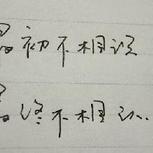 最初不相识
最终不相认..